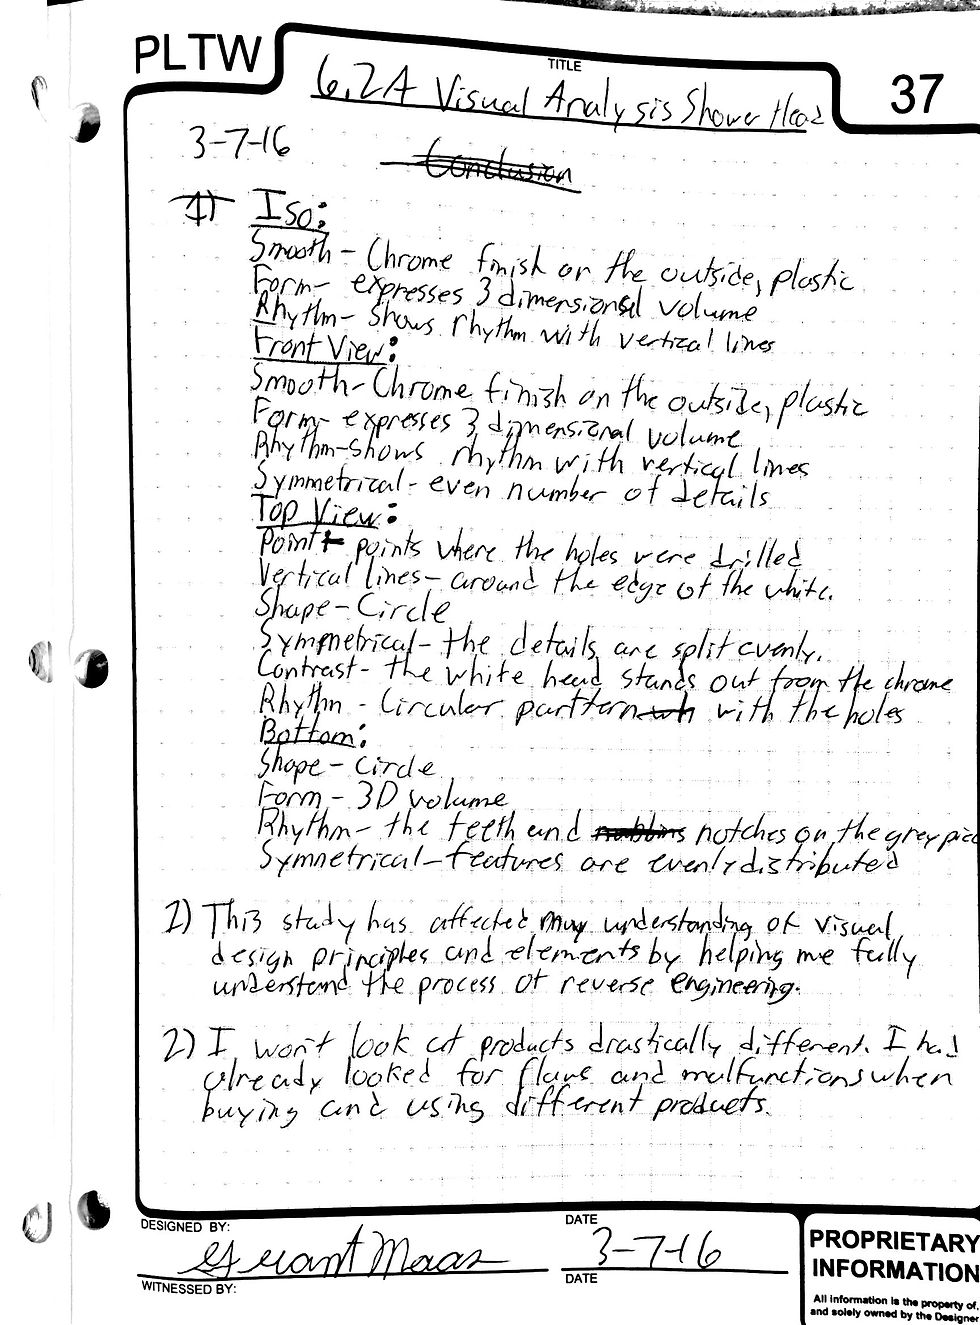 PLTW
TITLE
6.2A Visual Analysis Shower Head
37
3-7-16
Conclusion
1) Iso:
Smooth - Chrome finish on the outside, plastic
Form - expresses 3 dimensional volume
Rhythm - Shows rhythm with vertical lines
Front View:
Smooth - Chrome finish on the outside, plastic
Form - expresses 3 dimensional volume
Rhythm - shows rhythm with vertical lines
Symmetrical - even number of details
Top View:
Point - points where the holes were drilled
Vertical lines - around the edge of the white.
Shape - Circle
Symmetrical - the details are split evenly.
Contrast - the white head stands out from the chrome
Rhythm - Circular parttern with the holes
Bottom:
Shape - Circle
Form - 3D volume
Rhythm - the teeth and nubbins notches on the grey piec
Symmetrical - features are evenly distributed
1) This study has affected my understanding of visual
design principles and elements by helping me fully
understand the process of reverse engineering.
2) I won't look at products drastically different. I had
already looked for flaws and malfunctions when
buying and using different products.
DESIGNED BY:
Grant Maas
DATE
3-7-16
WITNESSED BY:
DATE
PROPRIETARY
INFORMATION
All information is the property of,
and solely owned by the Designer